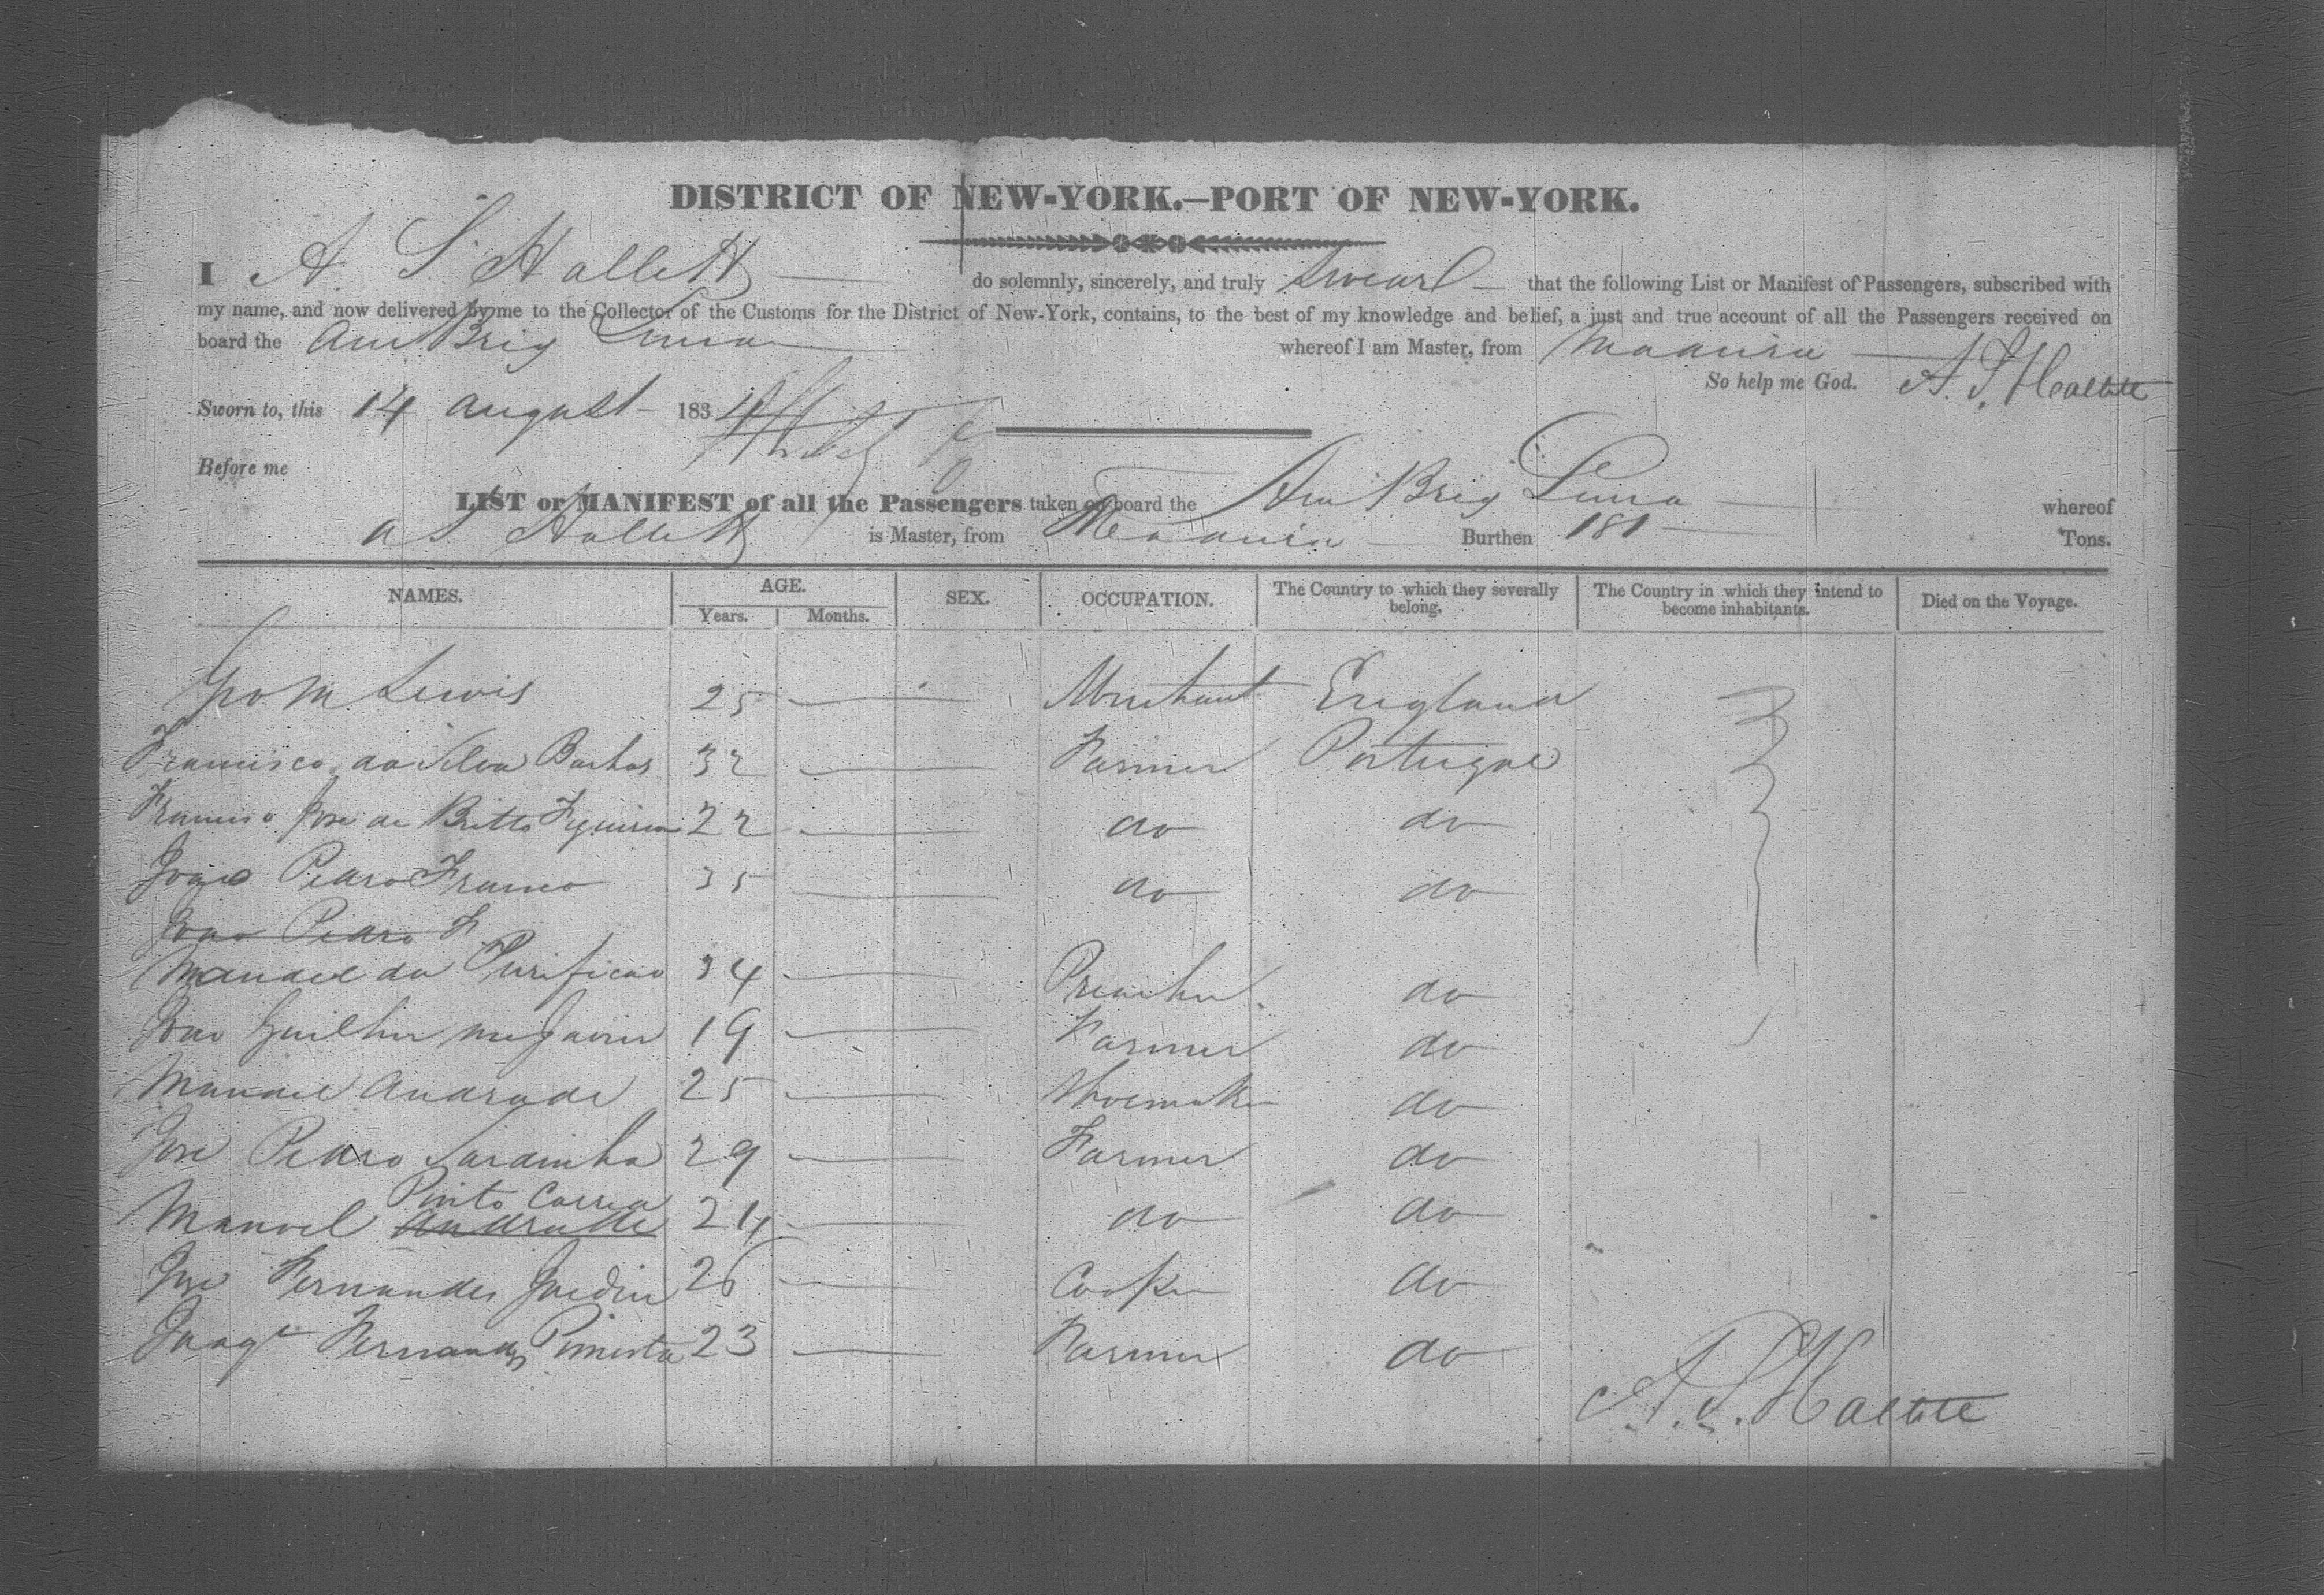 DISTRICT OF NEW-YORK.—PORT OF NEW-YORK.
I A. S. Hallett do solemnly, sincerely, and truly Swear that the following List or Manifest of Passengers, subscribed with
my name, and now delivered by me to the Collector of the Customs for the District of New-York, contains, to the best of my knowledge and belief, a just and true account of all the Passengers received on
board the Am Brig Luna whereof I am Master, from Madeira
So help me God. A. S. Hallett
Sworn to, this 14 August 1834
Before me
LIST or MANIFEST of all the Passengers taken on board the Am Brig Luna whereof
A S Hallett is Master, from Madeira Burthen 181 Tons.
NAMES. AGE. SEX. OCCUPATION. The Country to which they severally belong. The Country in which they intend to become inhabitants. Died on the Voyage.
Years. Months.
Lewis 25 Merchant England
Francisco da Silva 32 Farmer Portugal
Francisco Jose de Britto 22 do do
Pedro Franco 35 do do
Joao Pedro F
Manuel da Purificao 34 Preacher do
Joao 19 Farmer do
Manuel Andrade 25 Shoemaker do
Jose Pedro Sardinha 29 Farmer do
Pinto Correa
Manoel Andrade 24 do do
Jose Fernandes Jardin 26 do
Fernandes Pimenta 23 Farmer do
A. S. Hallett